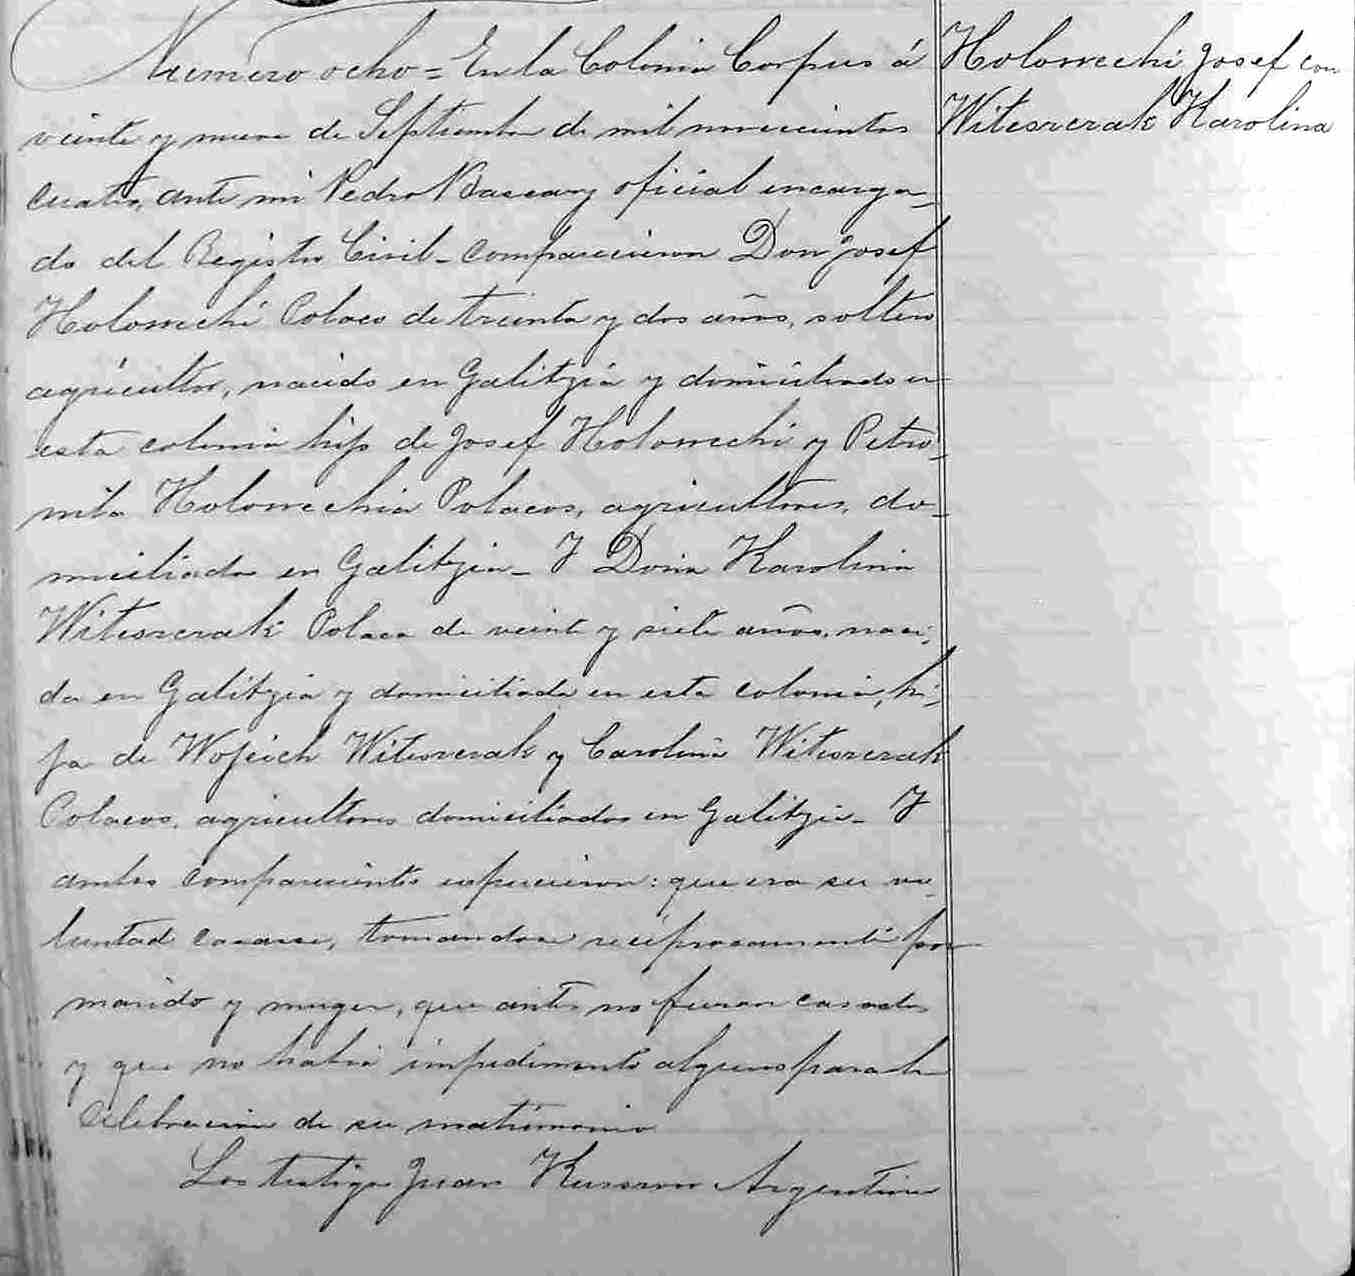 Numero ocho = En la Colonia Corpus á
veinte y nueve de Septiembre de mil novecientos
cuatro, ante mi Pedro oficial encarga-
do del Registro Civil - comparecieron Don Josef
Holowechi Polaco de treinta y dos años, soltero
agricultor, nacido en Galitzia y domiciliado en
esta colonia hijo de Josef Holowechi y Petro-
nila Holowechia Polacos, agricultores, do-
miciliados en Galitzia - Y Doña Karolina
Witeszczak Polaca de veinte y siete años, naci-
da en Galitzia y domiciliada en esta colonia, hi-
ja de Wojcich Witeszczak y Carolina Witeszczak
Polacos, agricultores domiciliados en Galitzia - Y
ambos comparecientes expusieron: que era su vo-
luntad casarse, tomandose reciprocamente por
marido y muger, que antes no fueron casados
y que no habia impedimento alguno para la
celebracion de su matrimonio
Los testigos Juan Argentino
Holowechi Josef con
Witeszczak Karolina